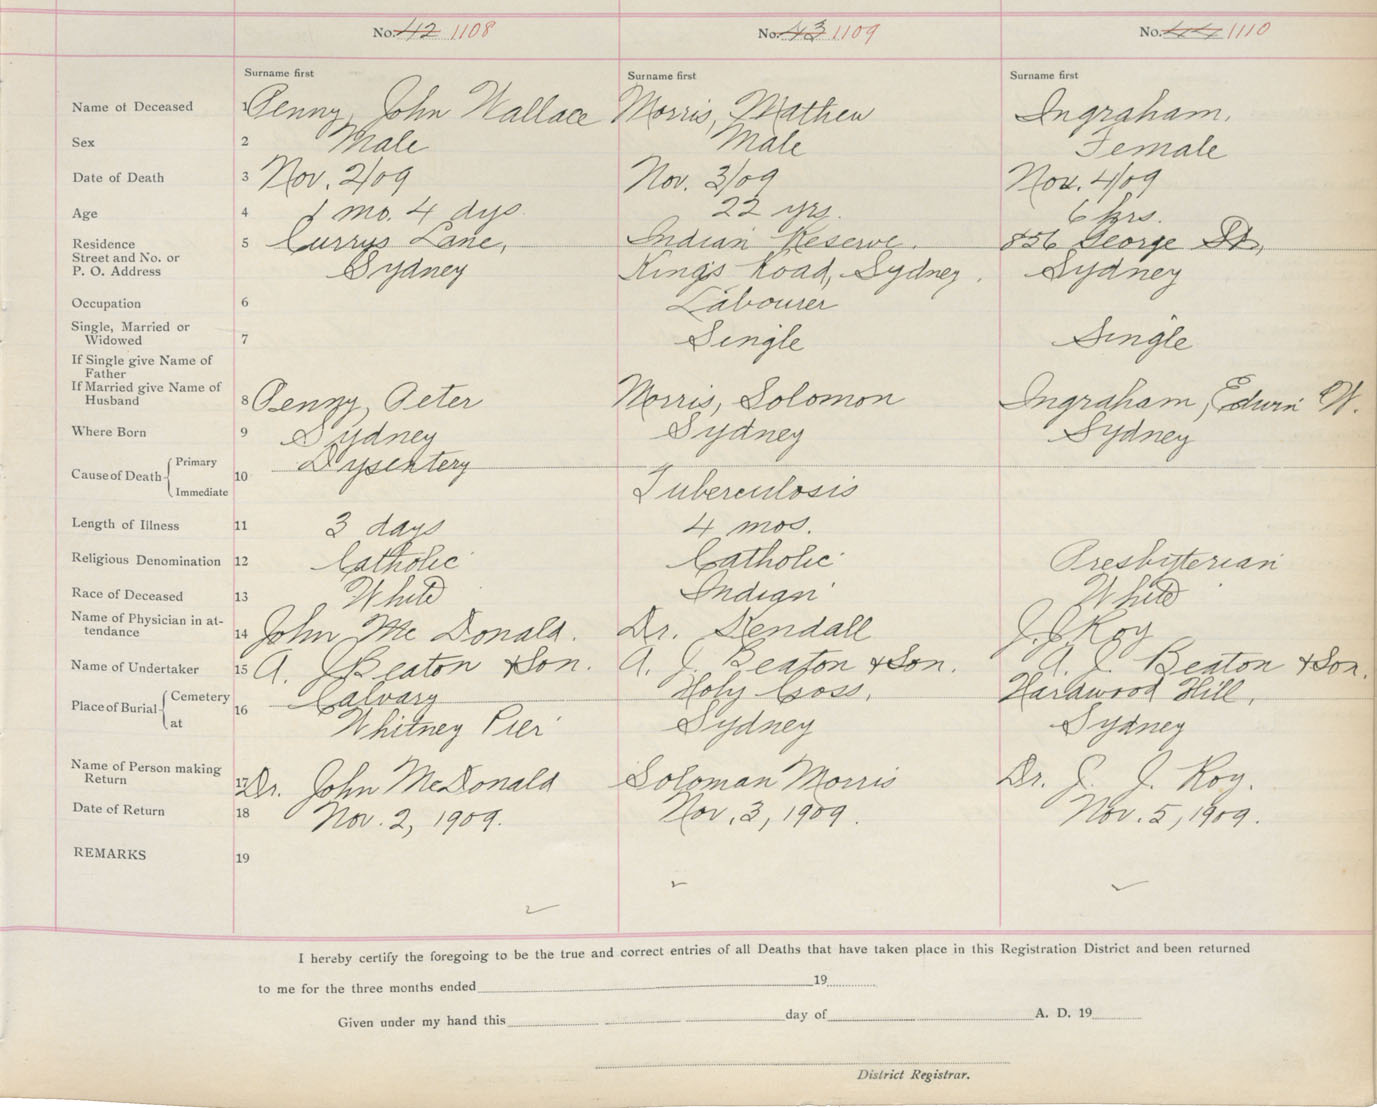 No. 42 1108 No. 43 1109 No. 44 1110
Surname first Surname first Surname first
Name of Deceased 1 Penny, John Wallace Morris, Mathew Ingraham,
Sex 2 Male Male Female
Date of Death 3 Nov. 2/09 Nov. 3/09 Nov. 4/09
Age 4 1 mo. 4 dys. 22 yrs. 6 hrs.
Residence 5 Currys Lane, Indian Reserve. 856 George St.,
Street and No. or
P. O. Address Sydney King's Road, Sydney. Sydney
Occupation 6 Labourer
Single, Married or
Widowed 7 Single Single
If Single give Name of
Father
If Married give Name of
Husband 8 Penny, Peter Morris, Solomon Ingraham, Edwin W.
Where Born 9 Sydney Sydney Sydney
Cause of Death Primary Dysentery
10
Immediate Tuberculosis
Length of Illness 11 3 days 4 mos.
Religious Denomination 12 Catholic Catholic Presbyterian
Race of Deceased 13 White Indian White
Name of Physician in at-
tendance 14 John McDonald. Dr. Kendall J. J. Roy
Name of Undertaker 15 A. J. Beaton & Son. A. J. Beaton & Son. A. J. Beaton & Son.
Place of Burial Cemetery Calvary Holy Coss, Hardwood Hill,
16
at Whitney Pier Sydney Sydney
Name of Person making
Return 17 Dr. John McDonald Soloman Morris Dr. J. J. Roy.
Date of Return 18 Nov. 2, 1909. Nov. 3, 1909. Nov. 5, 1909.
REMARKS 19
I hereby certify the foregoing to be the true and correct entries of all Deaths that have taken place in this Registration District and been returned
to me for the three months ended 19
Given under my hand this day of A. D. 19
District Registrar.